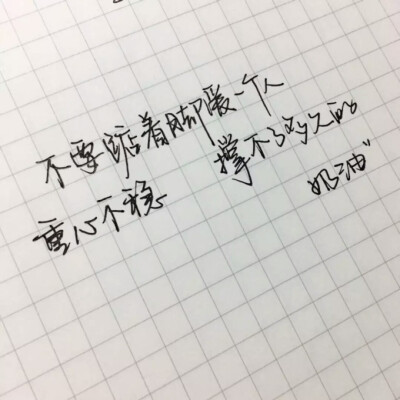 不要踮着脚爱一个人
重心不稳 撑不了多久的
奶油"